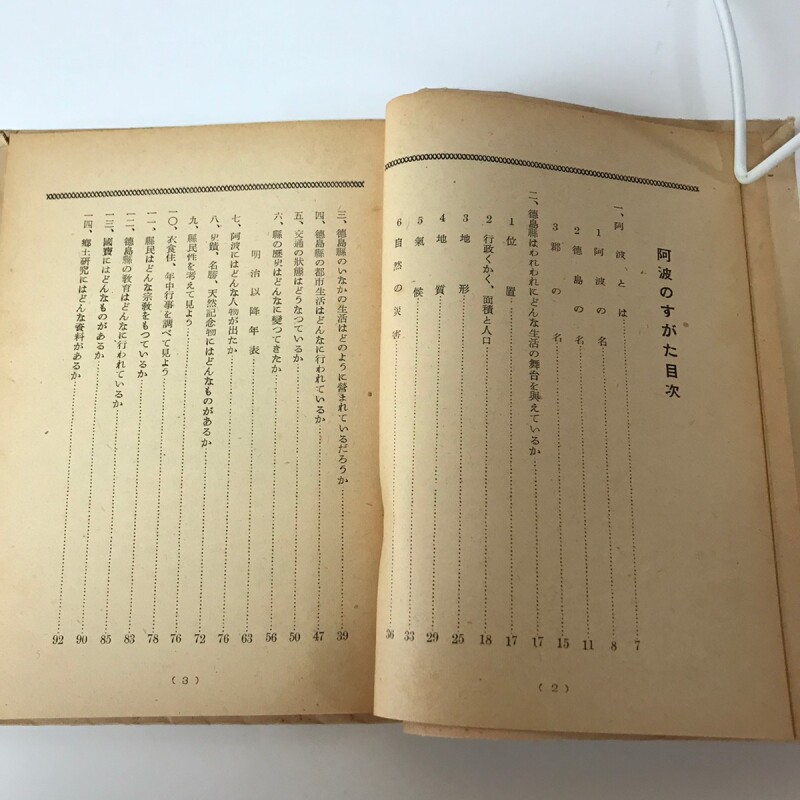 阿波のすがた目次
一、阿波とは……7
1 阿波の名……8
2 徳島の名……11
3 郡の名……15
二、徳島縣はわれわれにどんな生活の舞台を與えているか……17
1 位置……17
2 行政くかく、面積と人口……18
3 地形……25
4 地質……29
5 氣候……33
6 自然の災害……36
(2)
三、徳島縣のいなかの生活はどのように営まれているだろうか……39
四、徳島縣の都市生活はどんなに行われているか……47
五、交通の狀態はどうなつているか……50
六、縣の歴史はどんなに變つてきたか……56
明治以降年表……63
七、阿波にはどんな人物が出たか……76
八、史蹟、名勝、天然記念物にはどんなものがあるか……72
九、縣民性を考えて見よう……76
一〇、衣食住、年中行事を調べて見よう……76
一一、縣民はどんな宗敎をもつているか……78
一二、徳島縣の敎育はどんなに行われているか……83
一三、國寶にはどんなものがあるか……85
一四、鄕土研究にはどんな資料があるか……90
92
(3)